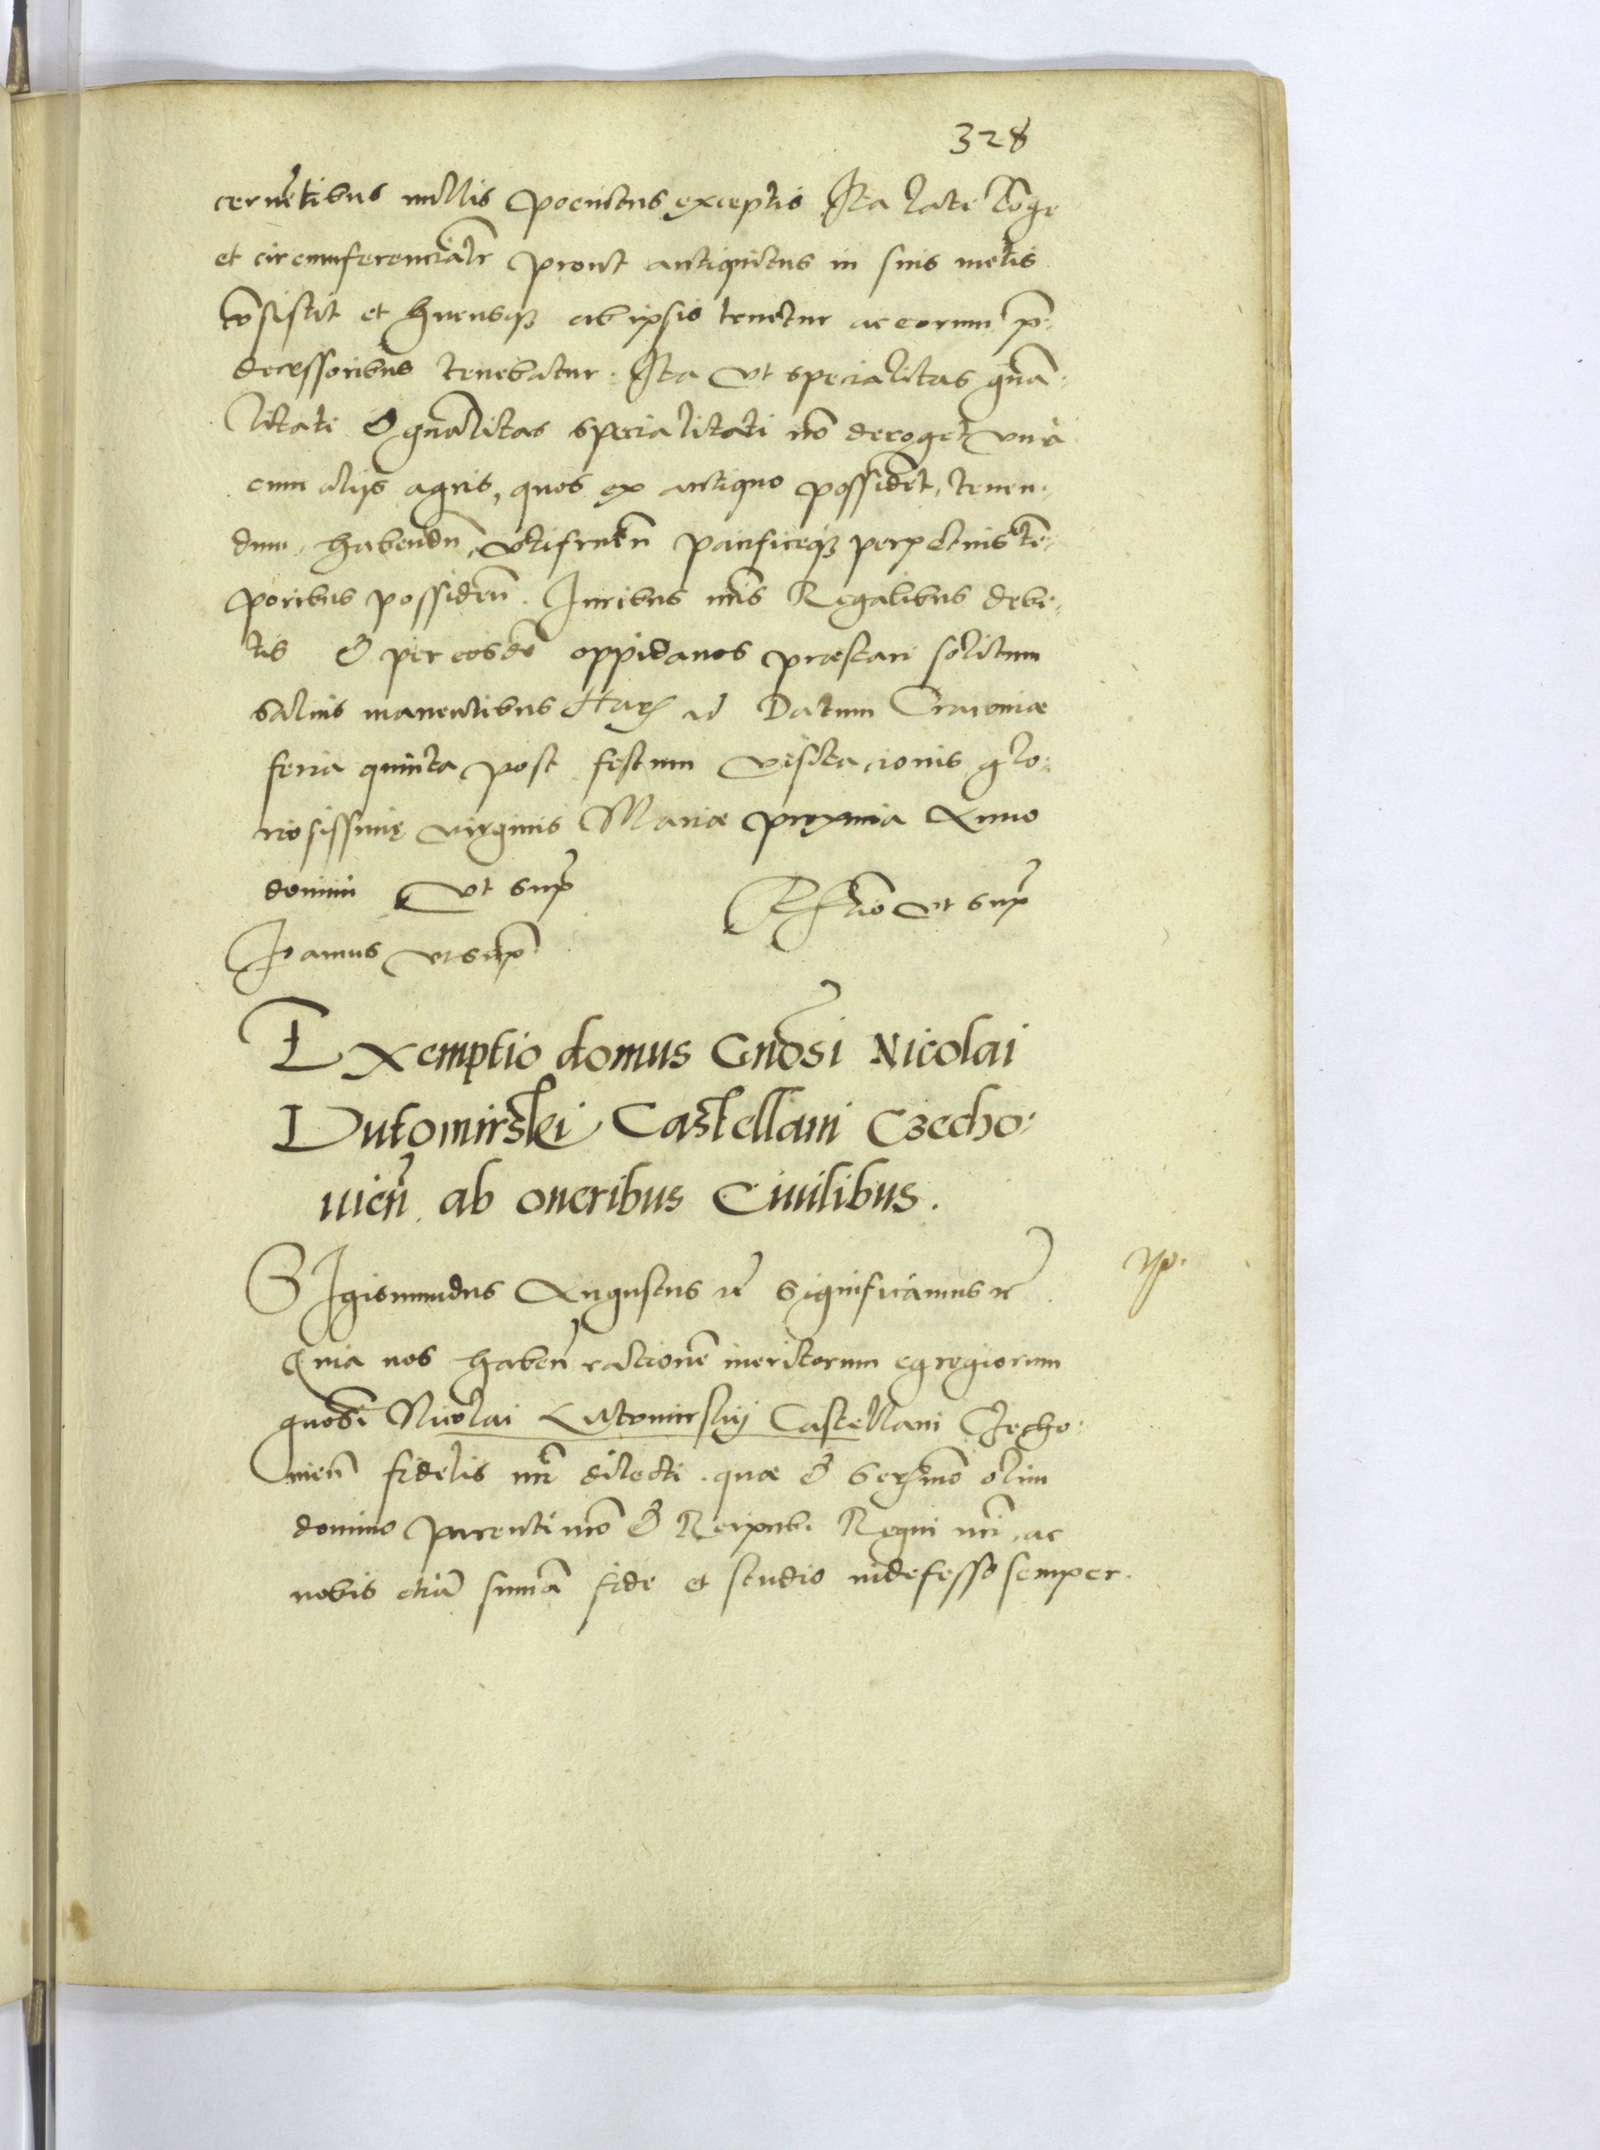 328
cernẽtibus nullis poenitus exceptis Ita late lõge
et circumferencialr̃ prout antiquitus in suis metis
cõsistit et hucusq; ab ipsis tenetur ac eorum p̃-
decessoribus tenebatur. Ita vt specialitas gñã-
litati & gñalitas specialitati nõ deroget vna
cum alijs agris, quos ex antiquo possidẽt, tenen-
dum, habendũ, vtifruẽn pacificeq; perpetuis tẽ-
poribus possideñ. Iuribus nr̃is Regalibus debi-
tis & per eosdẽ oppidanos præstari solitum
saluis manentibus Harũ Datum Cracouiæ
feria quinta post festum visitacionis glo-
riosissimę virginis Mariæ proxima Anno
domini vt supr̃
Rẽlatio vt supr̃
Ioannes vt sup̃
Exemptio domus Gñosi Nicolai
Lutomirski Castellani Czecho-
uień ab oneribus Ciuilibus.
SIgismundus Augustus rc̃ Significamus rc̃
np.
Quia nos habeñ rationẽ meritorum egregiorum
gnosi Nicolai Lutomirskij Castellani Czecho-
uieñ fidelis nr̃i dilecti. quæ & Serẽmo olim
domino parenti nr̃o & Reipub. Regni nr̃i, ac
nobis etiã sumã fide et studio indefesso semper.